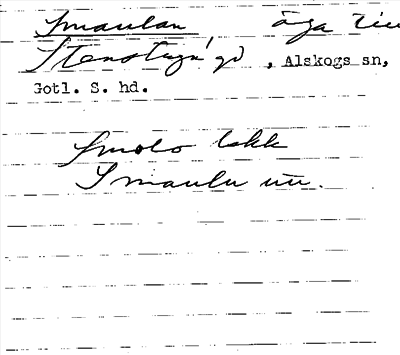 Smaulan, äga till
Stenstugu gd, Alskogs sn,
Gotl. S. hd.
Smolo lakk
Smaulu un.